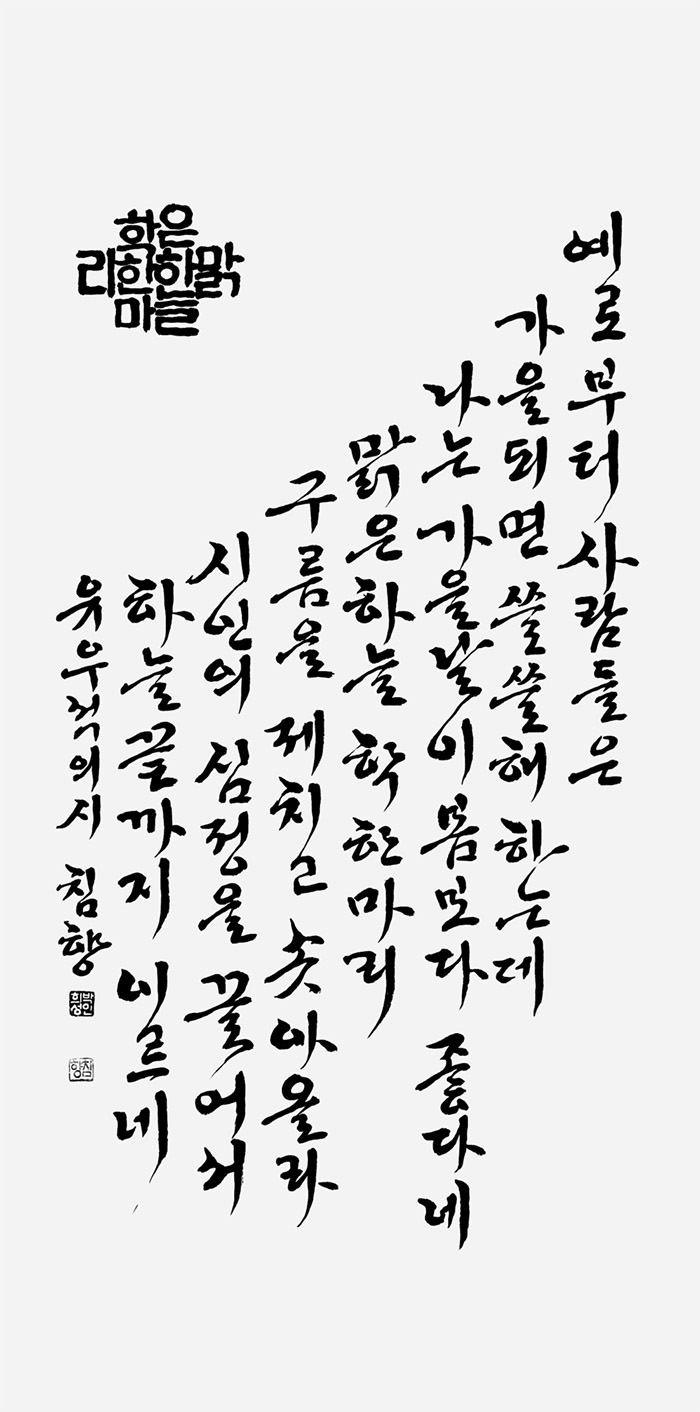 예로부터 사람들은
가을되면 쓸쓸해 하는데
나는 가을날이 봄보다 좋다네
맑은하늘 학 한마리
구름을 제치고 솟아올라
시인의 심정을 끌어서
하늘끝까지 이르네
유우석의시 침향
침향
맑은하늘학한마리